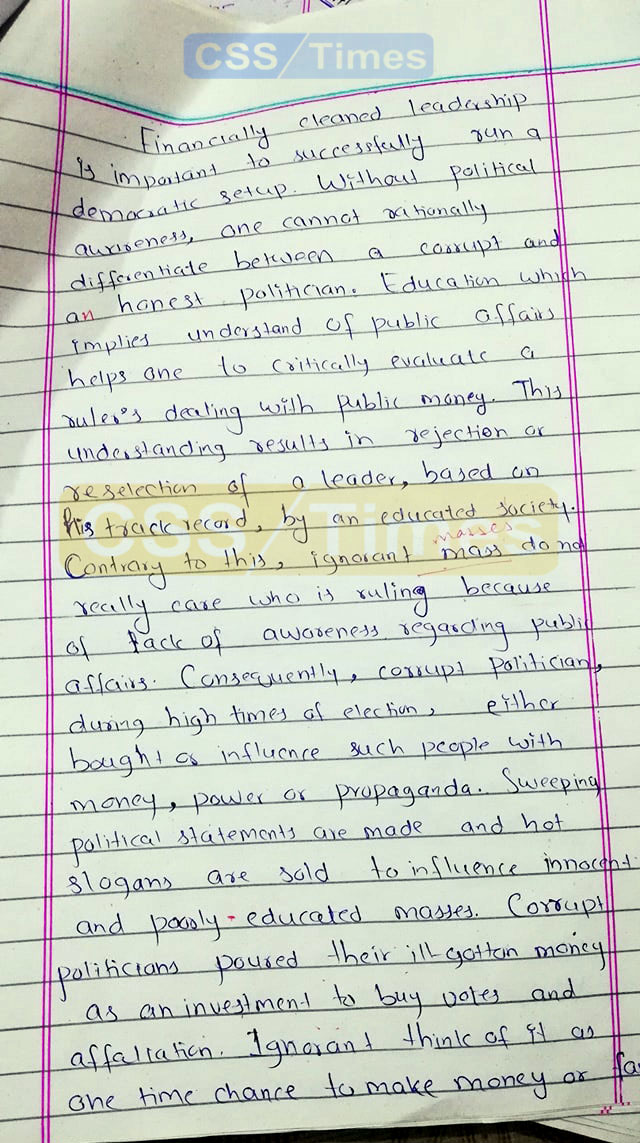 CSS/Times
Financially cleaned leadership
is important to successfully run a
democratic setup. Without political
awareness, one cannot rationally
differentiate between a corrupt and
an honest politician. Education which
implies understand of public affairs
helps one to critically evaluate a
ruler's dealing with public money. This
understanding results in rejection or
reselection of a leader, based on
his track record, by an educated society.
CSS/Times
masses
Contrary to this, ignorant mass do not
really care who is ruling because
of lack of awareness regarding public
affairs. Consequently, corrupt politicians,
during high times of election, either
bought or influence such people with
money, power or propaganda. Sweeping
political statements are made and hot
slogans are sold to influence innocent
and pooly-educated masses. Corrupt
politicians poured their ill-gotton money
as an investment to buy votes and
affaliation. Ignorant think of it as
one time chance to make money or